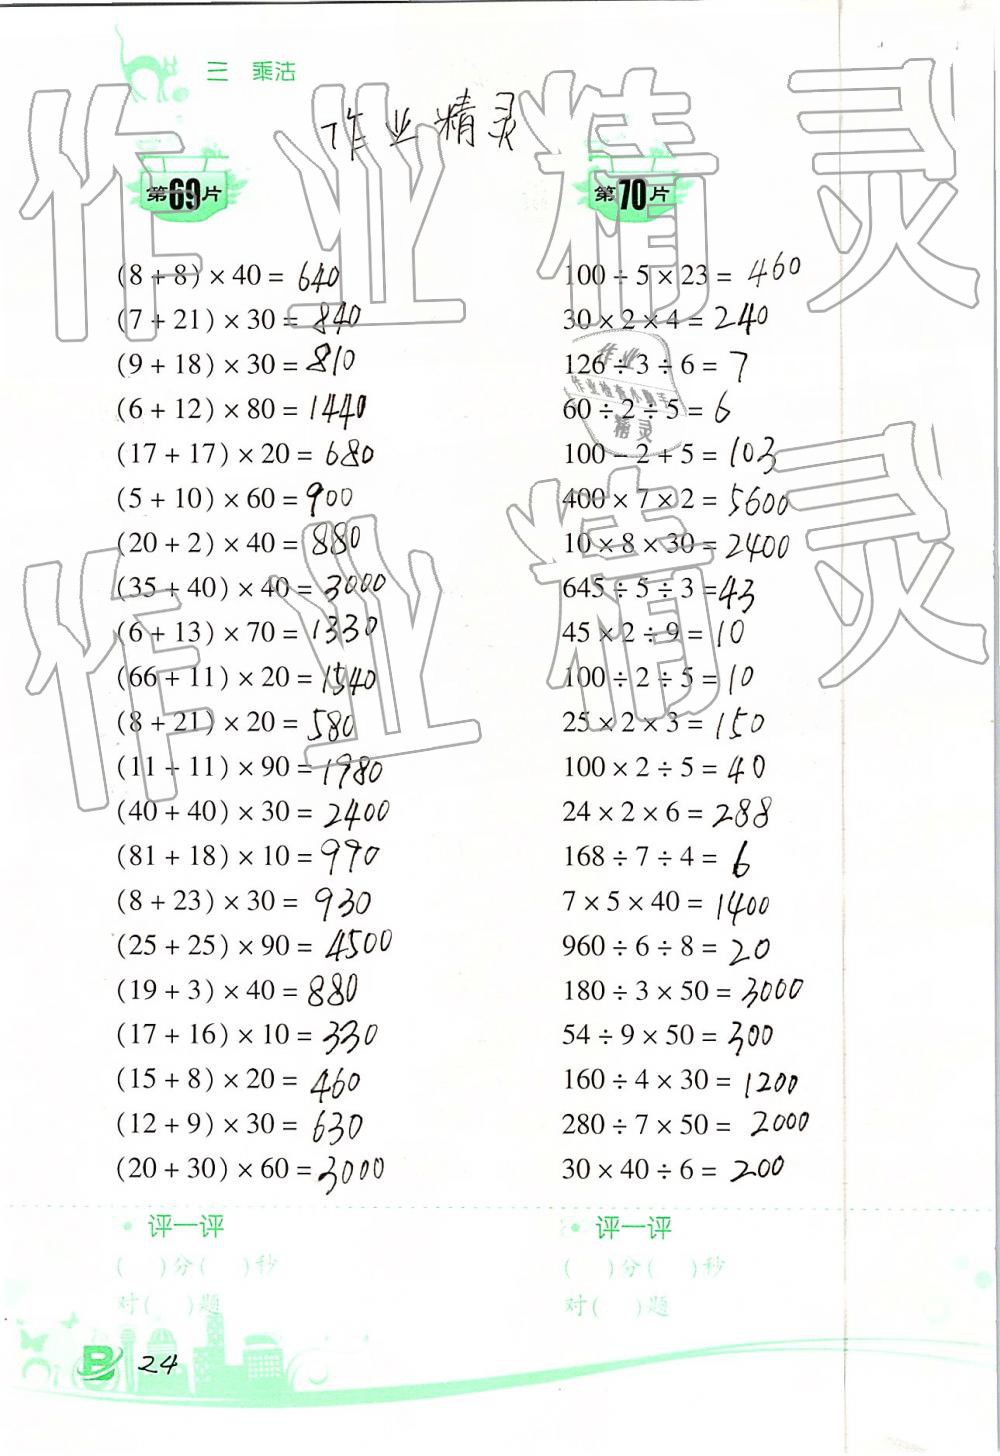 三 乘法
作业精灵
第69片
(8+8)×40=640
(7+21)×30=840
(9+18)×30=810
(6+12)×80=1440
(17+17)×20=680
(5+10)×60=900
(20+2)×40=880
(35+40)×40=3000
(6+13)×70=1330
(66+11)×20=1540
(8+21)×20=580
(11+11)×90=1980
(40+40)×30=2400
(81+18)×10=990
(8+23)×30=930
(25+25)×90=4500
(19+3)×40=880
(17+16)×10=330
(15+8)×20=460
(12+9)×30=630
(20+30)×60=3000
评一评
( )分( )秒
对( )题
第70片
100÷5×23=460
30×2×4=240
126÷3÷6=7
60÷2÷5=6
100-2+5=103
400×7×2=5600
10×8×30=2400
645÷5÷3=43
45×2÷9=10
100÷2÷5=10
25×2×3=150
100×2÷5=40
24×2×6=288
168÷7÷4=6
7×5×40=1400
960÷6÷8=20
180÷3×50=3000
54÷9×50=300
160÷4×30=1200
280÷7×50=2000
30×40÷6=200
评一评
( )分( )秒
对( )题
24
作业精灵
作业精灵
作业
作业检查小助手
精灵